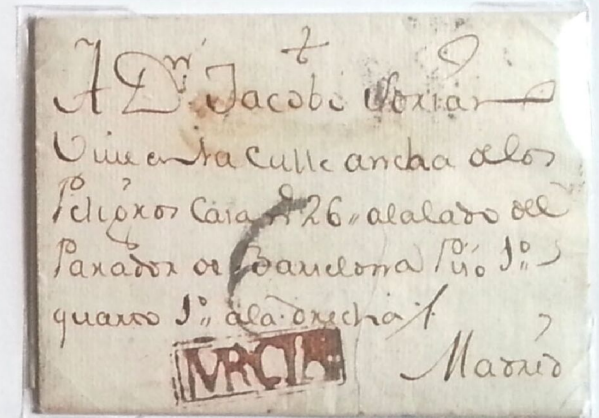 A Dn. Jacobo Soriano
Vive en la Calle ancha de los
Peligros Casa nº 26,, al alado del
Parador de Barcelona Piso 1º
quarto 1º,, ala drecha
Madrid
MVRCIA